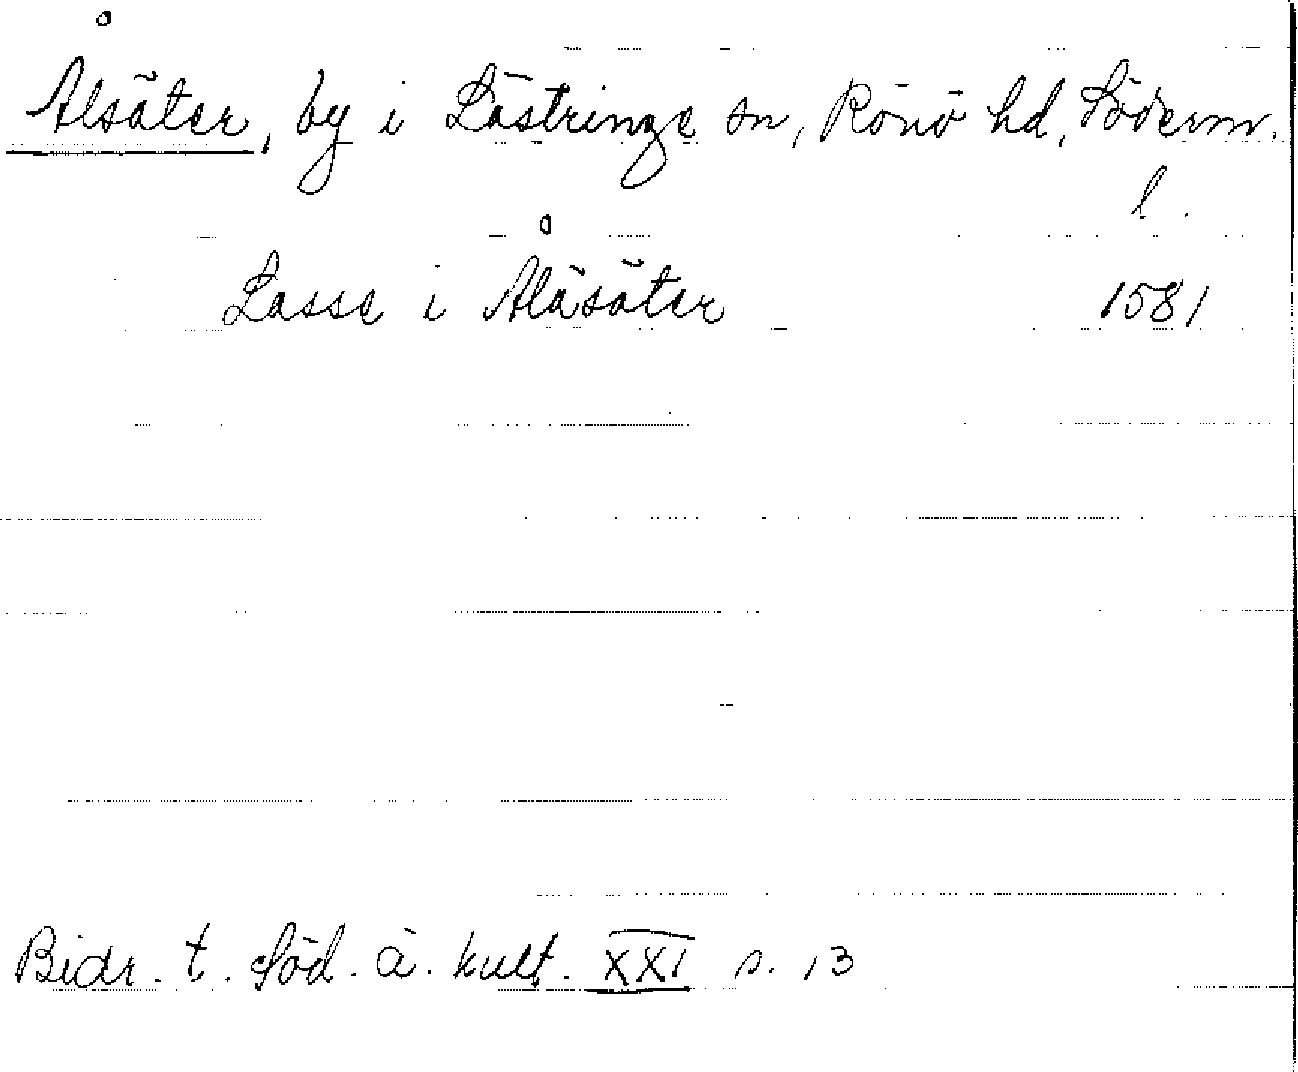 Ålsäter, by i Lästringe sn, Rönö hd, Söderm.
l.
Lasse i Åläsäter 1581
Bidr. t. Söd. ä. kult. XXI s. 13